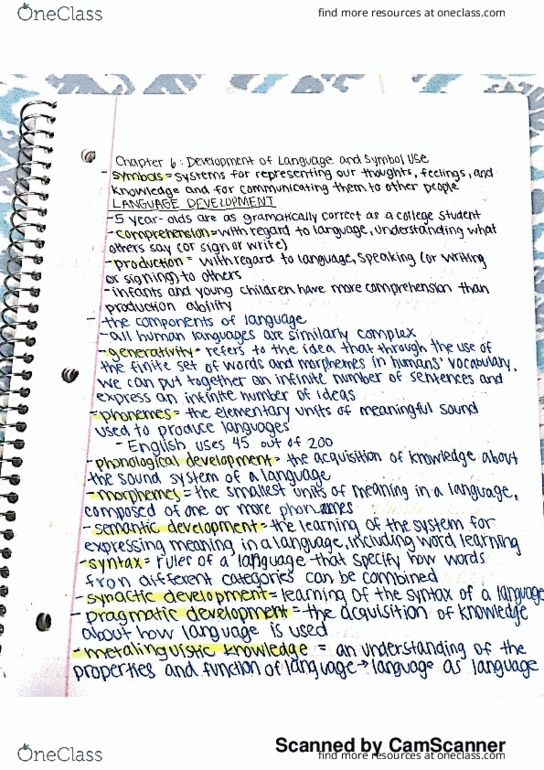 OneClass
find more resources at oneclass.com
Chapter 6: Development of Language and Symbol Use
- symbols = systems for representing our thoughts, feelings, and
knowledge and for communicating them to other people
LANGUAGE DEVELOPMENT
- 5 year-olds are as gramatically correct as a college student
- comprehension = with regard to language, understanding what
others say (or sign or write)
- production = with regard to language, speaking (or writing
or signing) to others
- infants and young children have more comprehension than
production ability
- the components of language
- all human languages are similarly complex
- generativity = refers to the idea that through the use of
the finite set of words and morphemes in humans' vocabulary,
we can put together an infinite number of sentences and
express an infinite number of ideas
- phonemes = the elementary units of meaningful sound
used to produce languages
- English uses 45 out of 200
- phonological development = the acquisition of knowledge about
the sound system of a language
- morphemes = the smallest units of meaning in a language,
composed of one or more phonemes
- semantic development = the learning of the system for
expressing meaning in a language, including word learning
- syntax = rules of a language that specify how words
from different categories can be combined
- synactic development = learning of the syntax of a language
- pragmatic development = the acquisition of knowledge
about how language is used
- metalinguistic knowledge = an understanding of the
properties and function of language → language as language
Scanned by CamScanner
OneClass
find more resources at oneclass.com